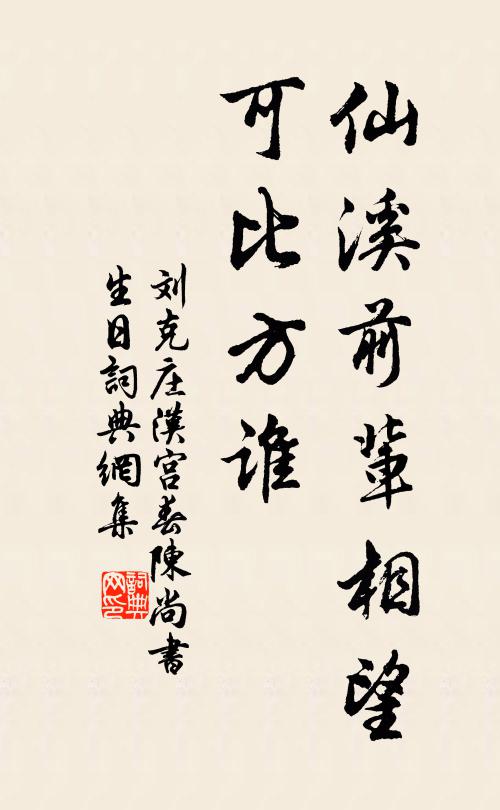 仙溪前輩相望
可比方誰
刘克庄漢宮春陳尚書
生日詞典網集
詞典
网印